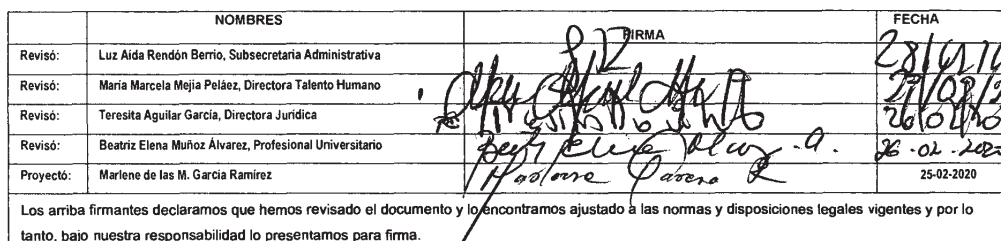 NOMBRES FIRMA FECHA
Revisó: Luz Aida Rendón Berrio, Subsecretaria Administrativa
Revisó: María Marcela Mejia Peláez, Directora Talento Humano
Revisó: Teresita Aguilar García, Directora Jurídica 26/02/20
Revisó: Beatriz Elena Muñoz Álvarez, Profesional Universitario 26-02-2020
Proyectó: Marlene de las M. Garcia Ramírez 25-02-2020
Los arriba firmantes declaramos que hemos revisado el documento y lo encontramos ajustado a las normas y disposiciones legales vigentes y por lo
tanto, bajo nuestra responsabilidad lo presentamos para firma.